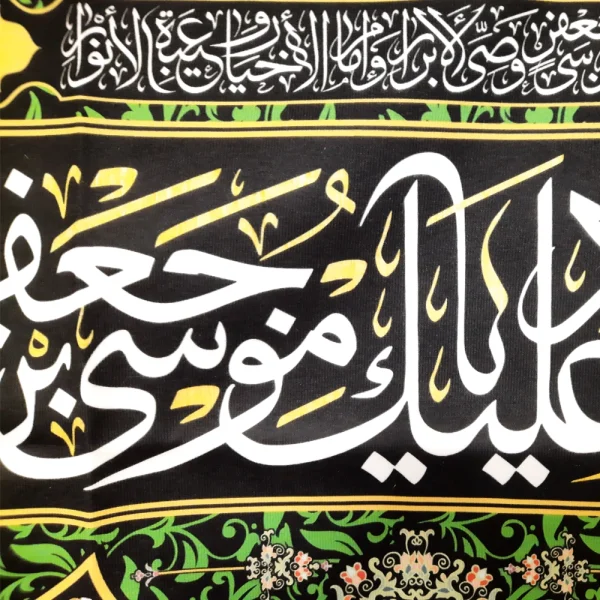 جعفر وصيّ الأبرار وإمام الأخيار وعيبة الأنوار
عليك يا موسى بن جعفر